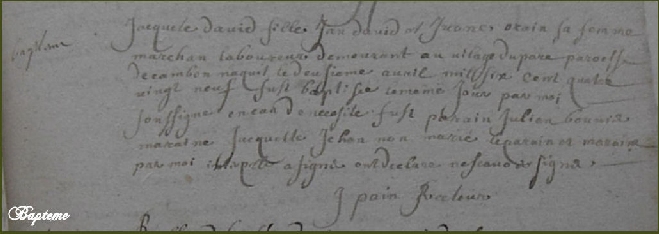 Jacquete david fille Jan david et Juane orain sa femme
bapteme
marchan laboureur demeurant au vilage du parc paroesse
de cambon naquit le deusieme auril mil six cent quatre
vingt neuf fust baptisée le meme jour par moi
soussigné en cas de necesité fust parain Julien
maraine Jacquette Jehan non marié le parain et maraine
par moi interpelé a signé ont declaré ne scauoir signé
J pain Recteur
Bapteme